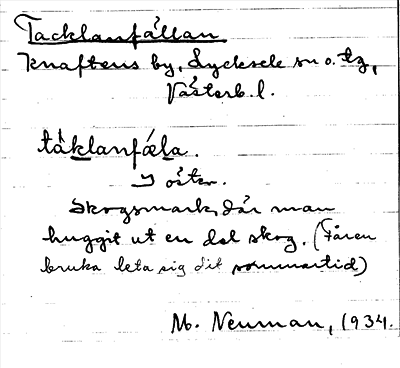 Tacklanfällan
Knaftens by, Lycksele sn o. tg,
Västerb. l.
tàklanfǽla.
I öster.
Skogsmark, där man
huggit ut en del skog. (Fåren
bruka leta sig dit sommartid)
M. Neuman, 1934.